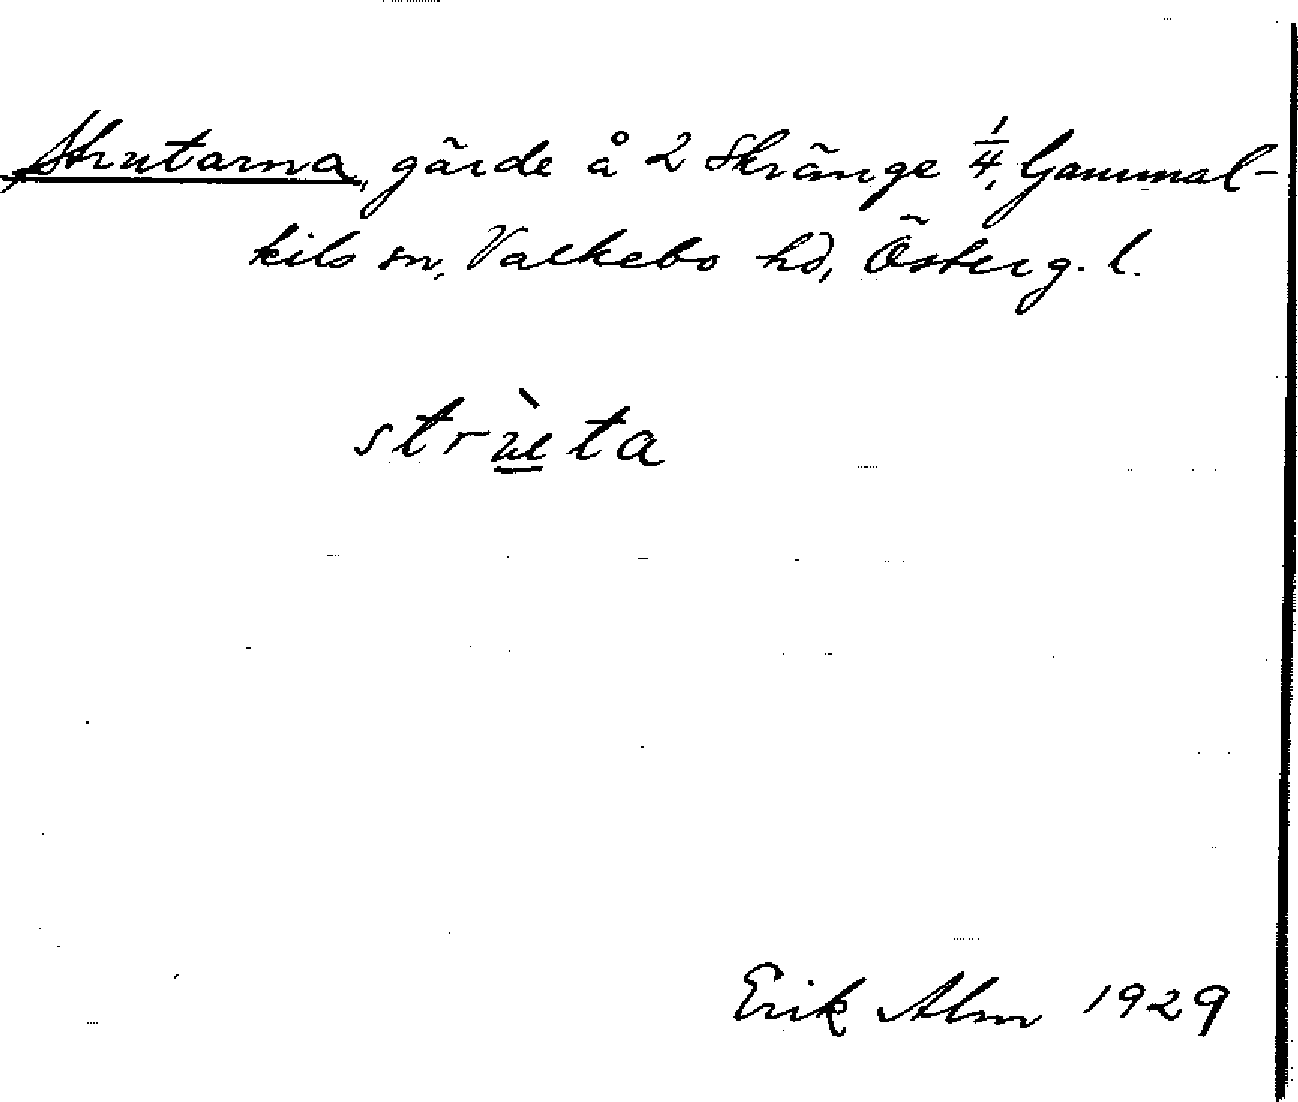 Strutarna, gärde å 2 Skränge 1/4, Gammal-
kils sn, Valkebo hd, Österg. l.
strùta
Erik Alm 1929